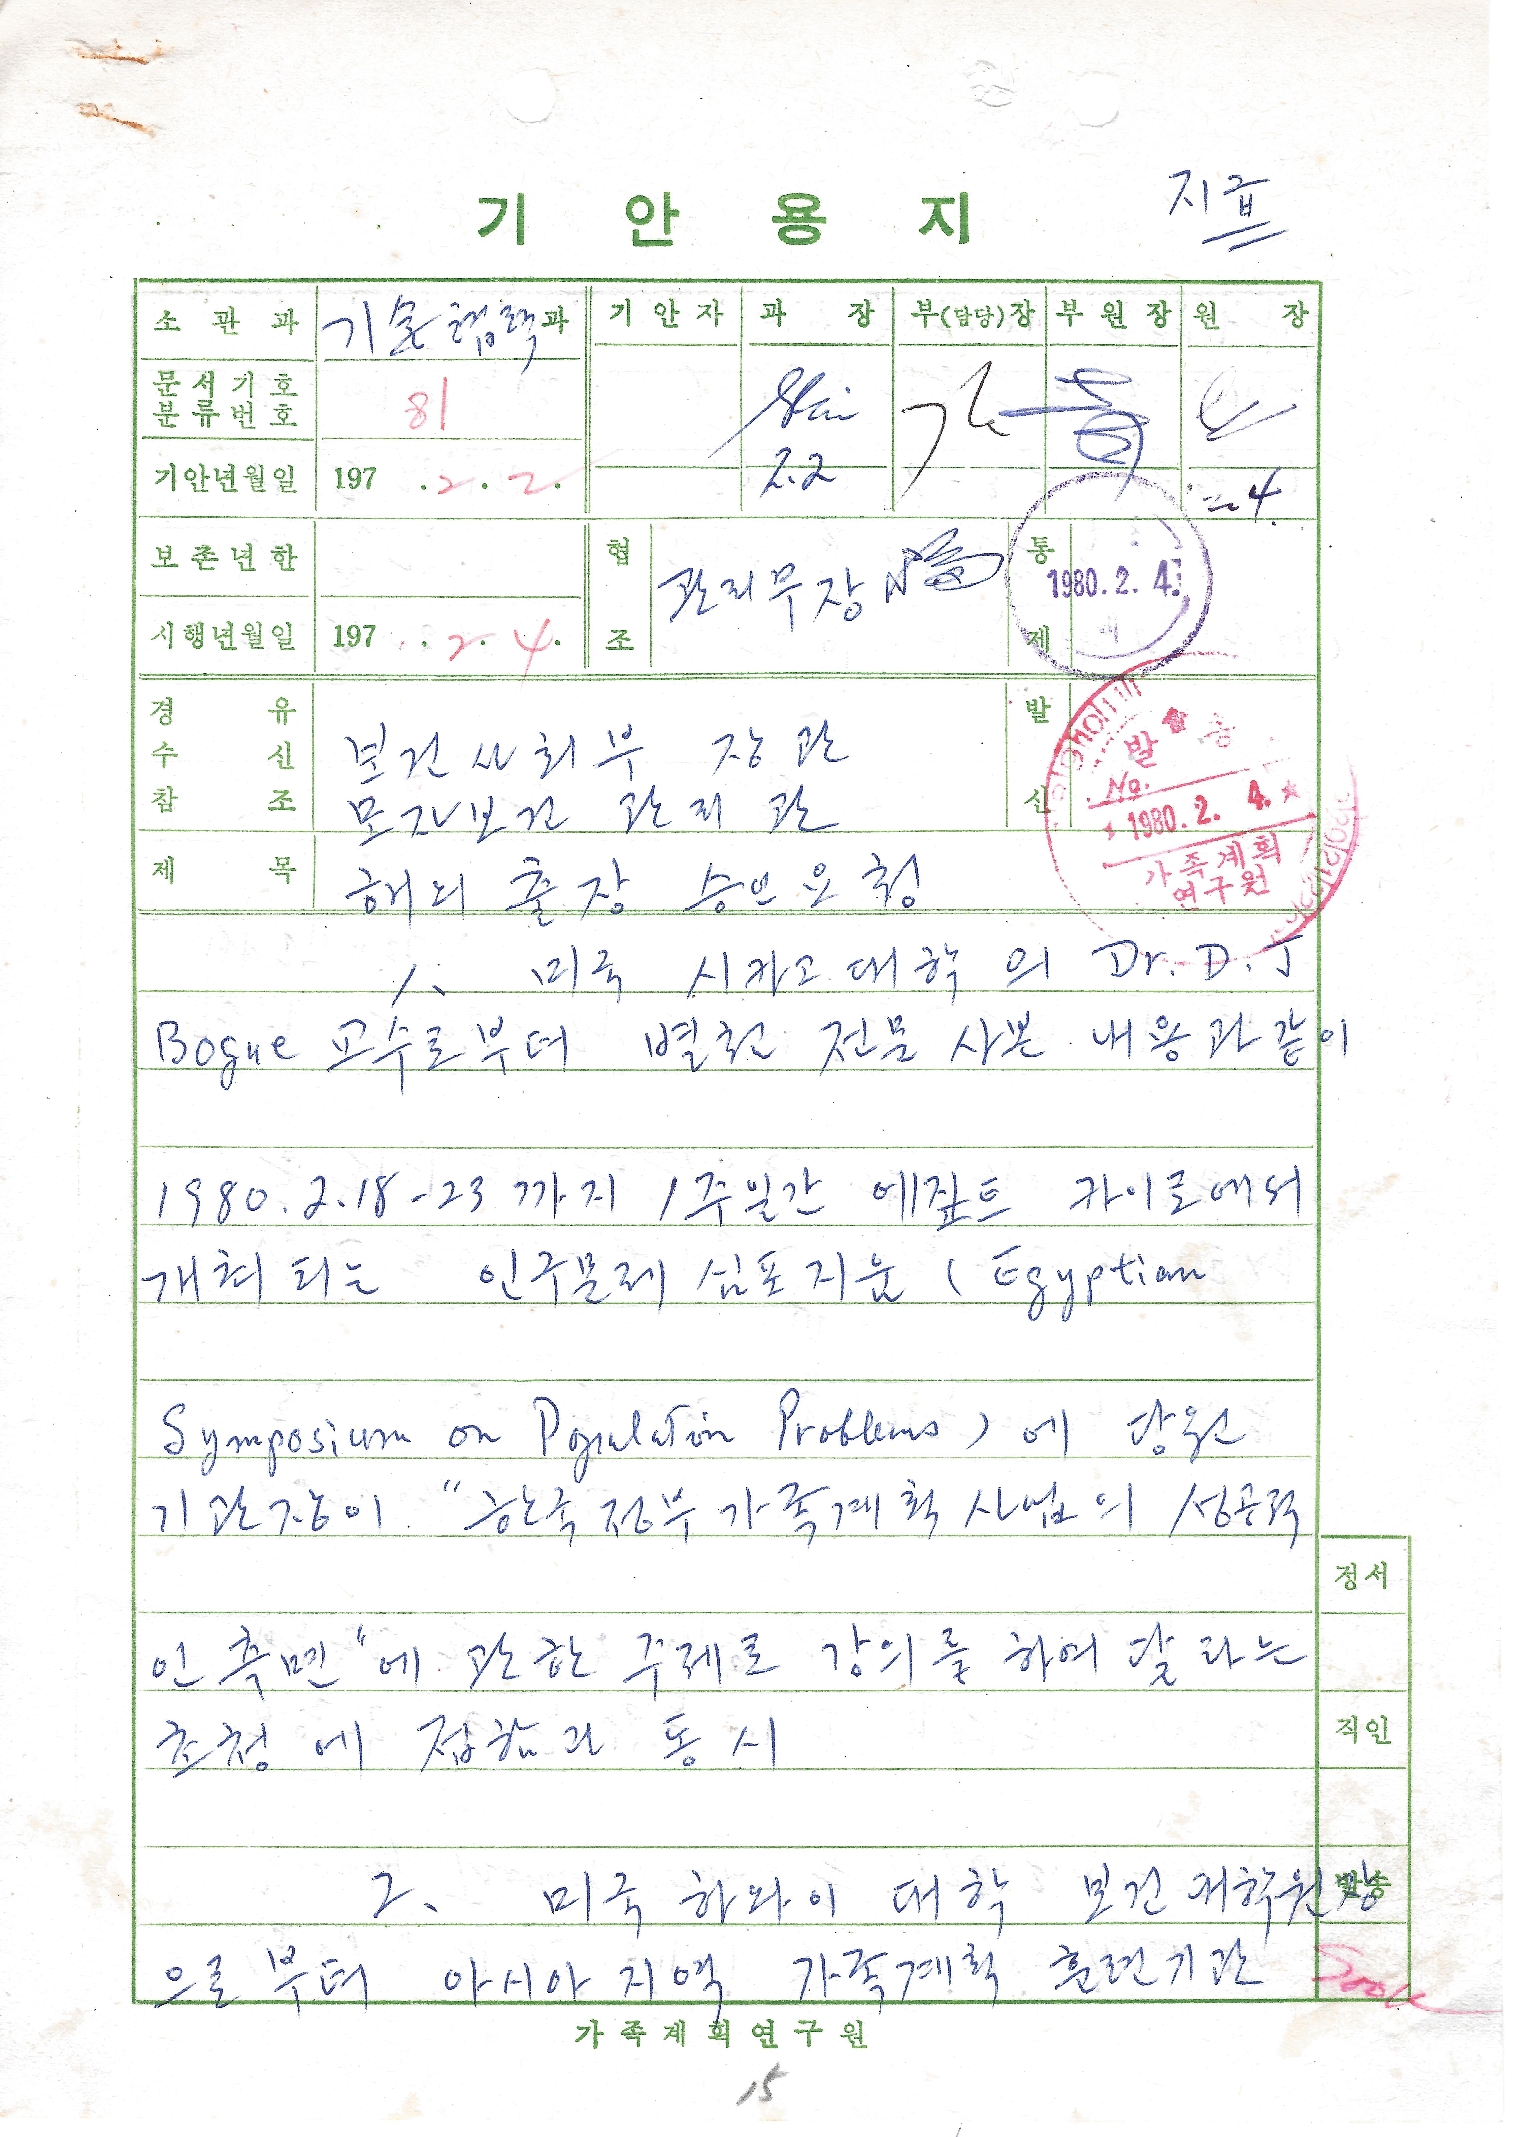 지급
기 안 용 지
소 관 과 기술협력과 기 안 자 과 장 부(담당)장 부 원 장 원 장
문서기호
분류번호 81
기안년월일 197 . 2. 2.
2.2
4.
보존년한 협조 관리부장 통제
1980. 2. 4.
시행년월일 197 . 2. 4.
경 유 발신
수 신 보건사회부 장관
참 조 모자보건 관리관
발 송
No.
1980. 2. 4.
가족계획
연구원
제 목 해외 출장 승인 요청
1. 미국 시카고 대학의 Dr. D. J
Bogue 교수로부터 별첨 전문 사본 내용과 같이
1980. 2. 18-23 까지 1주일간 에짚트 카이로에서
개최되는 인구문제 심포지움 ( Egyptian
Symposium on Population Problems ) 에 당원
기관장이 "한국정부 가족계획사업의 성공적
정서
인 측면"에 관한 주제로 강의를 하여 달라는
초청에 접함과 동시
직인
2. 미국 하와이 대학 보건대학원장
발송
으로부터 아시아 지역 가족계획 훈련기관
가족계획연구원
15